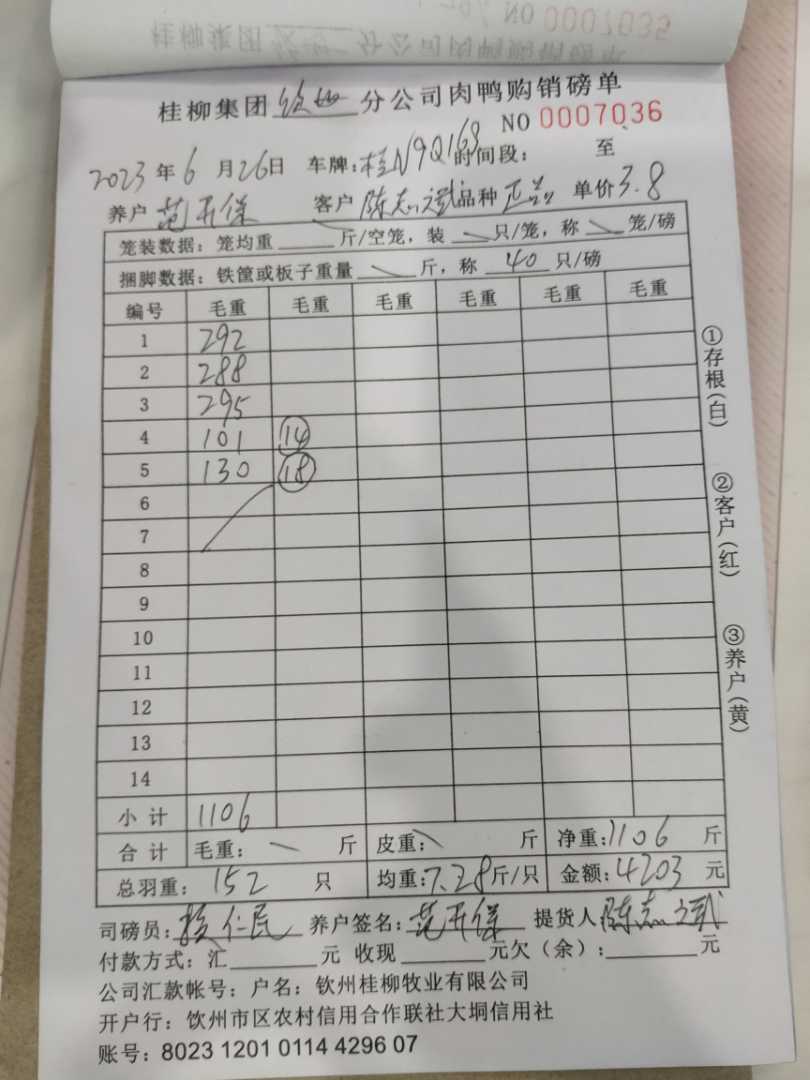 NO 0007035
桂柳集团 分公司肉鸭购销磅单
桂柳集团 钦州 分公司肉鸭购销磅单
NO 0007036
2023 年 6 月 26 日 车牌: 桂N9Q168 时间段: 至
养户 范开保 客户 陈志斌 品种 正品 单价 3.8
笼装数据: 笼均重 斤/空笼, 装 只/笼, 称 笼/磅
捆脚数据: 铁筐或板子重量 斤, 称 40 只/磅
编号 毛重 毛重 毛重 毛重 毛重 毛重
1 292
2 288
3 295
4 101 14
5 130 18
6
7
8
9
10
11
12
13
14
小计 1106
合计 毛重: 斤 皮重: 斤 净重: 1106 斤
总羽重: 152 只 均重: 7.28 斤/只 金额: 4203 元
司磅员: 仁民 养户签名: 范开保 提货人 陈志斌
付款方式: 汇 元 收现 元欠(余): 元
公司汇款帐号: 户名: 钦州桂柳牧业有限公司
开户行: 饮州市区农村信用合作联社大垌信用社
账号: 8023 1201 0114 4296 07
①存根(白)
②客户(红)
③养户(黄)